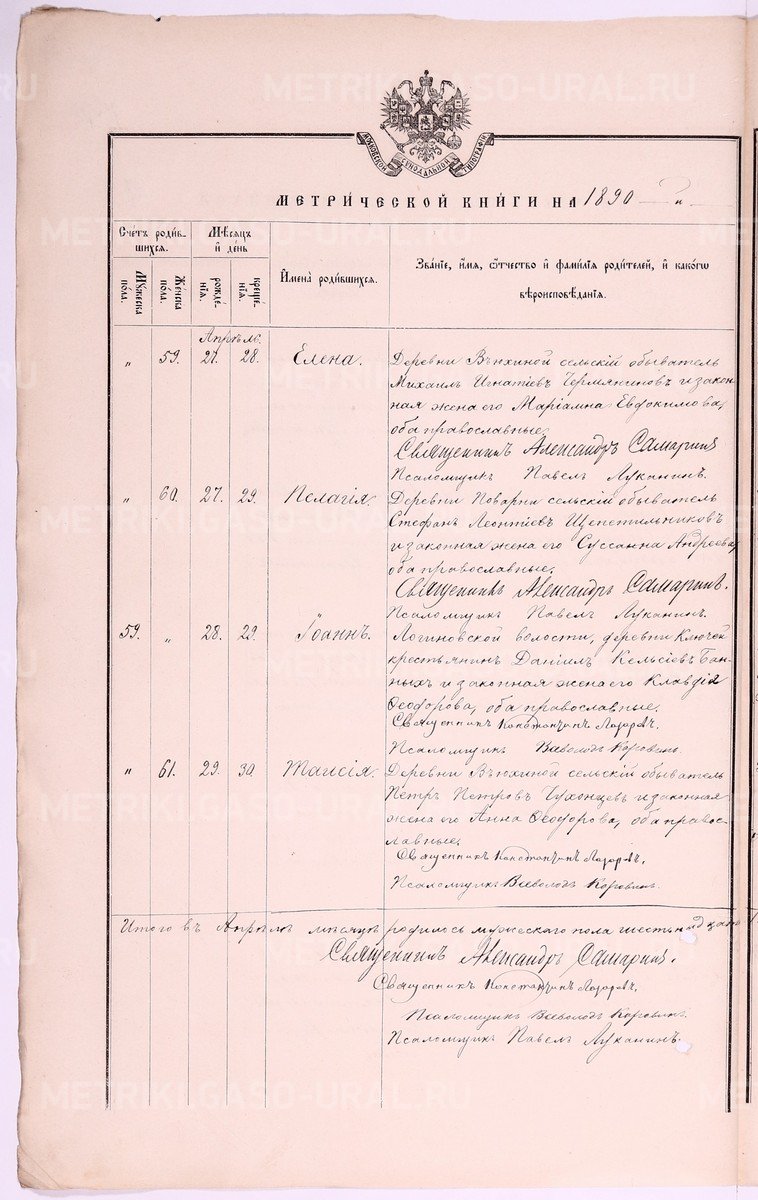 METRIKI.GASO-URAL.RU
МОСКОВСКОЙ СѴНОДАЛЬНОЙ ТИПОГРАФІИ
МЕТРИ́ЧЕСКОЙ КНИ́ГИ НА 1890
Счетъ роди́вшихся.
Мѣ́сяцъ и҆ де́нь
Му́жеска по́ла.
Же́нска по́ла.
рожде́нїѧ.
креще́нїѧ.
И҆мена̀ роди́вшихся.
Зва́нїе, и҆́мѧ, ѻ҆́тчество и҆ фами́лїѧ роди́телей, и҆ како́гѡ вѣроисповѣ́данїѧ.
Апрѣль.
„ 59. 27. 28. Елена. Деревни Вьюхиной сельскій обыватель
Михаилъ Игнатіевъ Чермяниновъ и закон-
ная жена его Маріамна Евдокимова,
оба православные.
Священникъ Александръ Самаринъ
Псаломщикъ Павелъ Луканинъ.
„ 60. 27. 29. Пелагія. Деревни Поварни сельскій обыватель
Стефанъ Леонтіевъ Щепетильниковъ
и законная жена его Сусанна Андреева,
оба православные.
Священникъ Александръ Самаринъ.
Псаломщикъ Павелъ Луканинъ.
59. „ 28. 29. Іоаннъ. Логиновской волости, деревни Ключей
крестьянинъ Даніилъ Кельсіевъ Бан-
ныхъ и законная жена его Клавдія
Ѳеодорова, оба православные.
Священникъ Константинъ Лазаревъ.
Псаломщикъ Всеволодъ Коровинъ.
„ 61. 29. 30. Таисія. Деревни Вьюхиной сельскій обыватель
Петръ Петровъ Чухонцевъ и законная
жена его Анна Ѳеодорова, оба право-
славные.
Священникъ Константинъ Лазаревъ.
Псаломщикъ Всеволодъ Коровинъ.
Итого въ Апрѣлѣ мѣсяцѣ родилось мужескаго пола шестьнадцать
Священникъ Александръ Самаринъ.
Священникъ Константинъ Лазаревъ.
Псаломщикъ Всеволодъ Коровинъ.
Псаломщикъ Павелъ Луканинъ.
METRIKI.GASO-URAL.RU